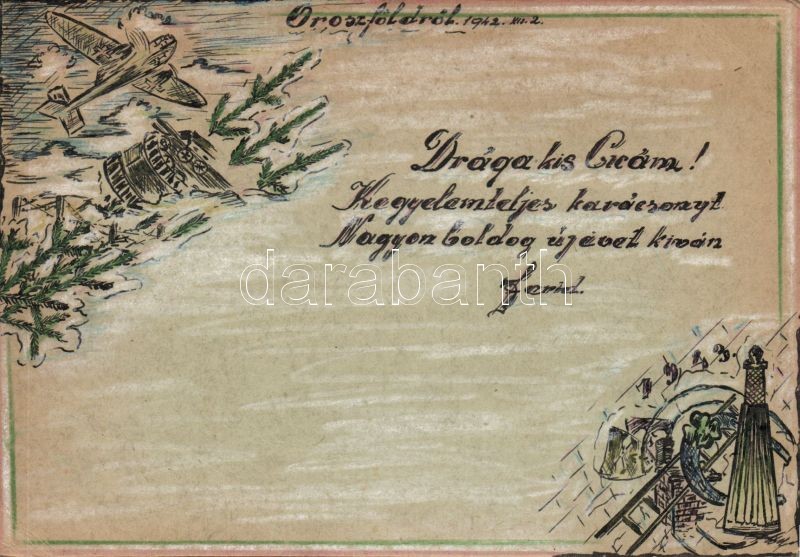 Oroszföldről. 1942. XII. 2.
Drága kis Cicám!
Kegyelemteljes karácsonyt
Nagyon boldog újévet kiván
darabanth
1943.